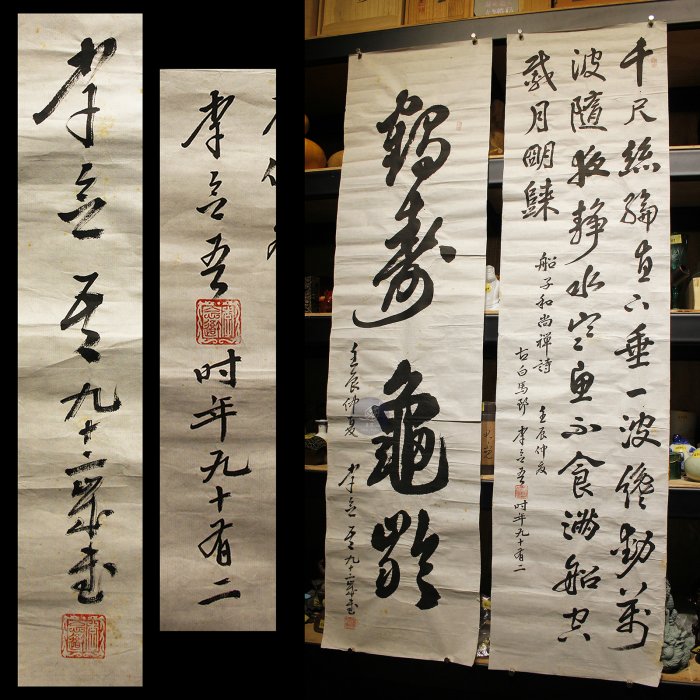 李立吾九十二歲書
李立吾
时年九十有二
鶴壽龜齡
壬辰仲夏
李立吾九十二歲書
千尺絲綸直下垂一波纔動萬
波隨夜靜水寒魚不食滿船空
載月明歸
船子和尚禪詩 壬辰仲夏
古白馬郡 李立吾 时年九十有二